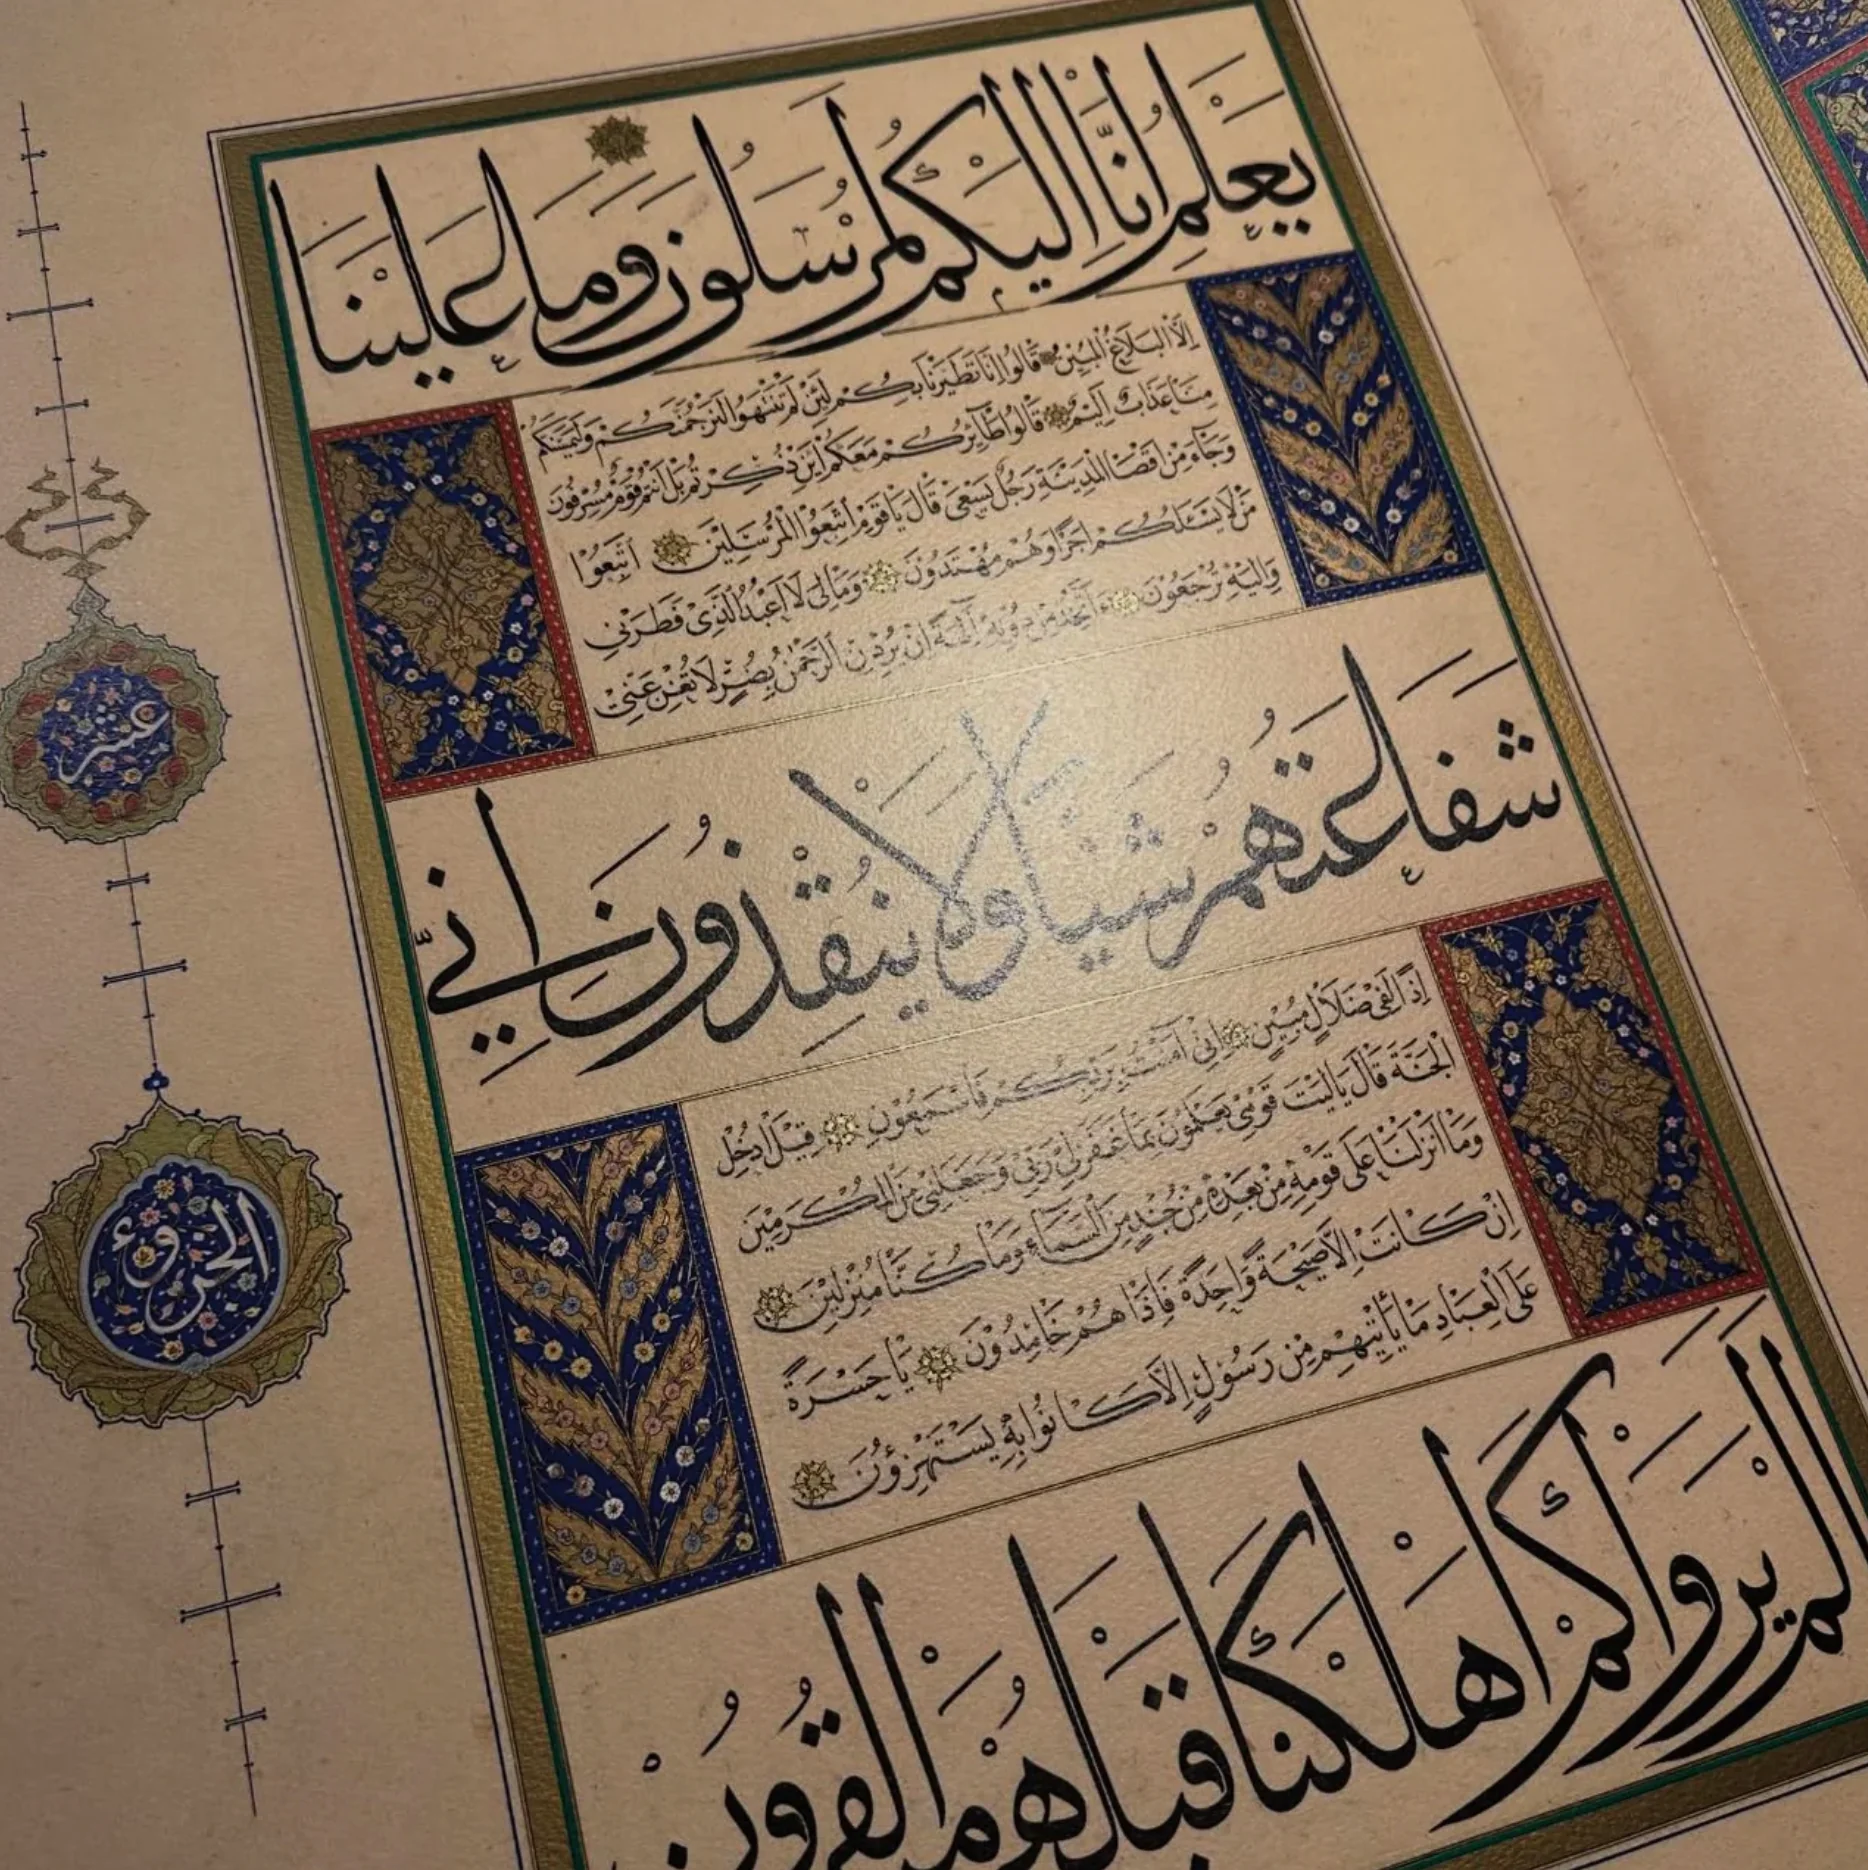 يَعْلَمُ اِنَّا اِلَيْكُمْ لَمُرْسَلُونَ وَمَا عَلَيْنَا
اِلَّا الْبَلَاغُ الْمُبِينُ قَالُوا اِنَّا تَطَيَّرْنَا بِكُمْ لَئِنْ لَمْ تَنْتَهُوا لَنَرْجُمَنَّكُمْ وَلَيَمَسَّنَّكُمْ
مِنَّا عَذَابٌ اَلِيمٌ قَالُوا طَٓائِرُكُمْ مَعَكُمْ اَئِنْ ذُكِّرْتُمْ بَلْ اَنْتُمْ قَوْمٌ مُسْرِفُونَ
وَجَٓاءَ مِنْ اَقْصَا الْمَدِينَةِ رَجُلٌ يَسْعٰى قَالَ يَا قَوْمِ اتَّبِعُوا الْمُرْسَلِينَ اِتَّبِعُوا
مَنْ لَا يَسْـَٔلُكُمْ اَجْرًا وَهُمْ مُهْتَدُونَ وَمَا لِيَ لَا اَعْبُدُ الَّذِي فَطَرَنِي
وَاِلَيْهِ تُرْجَعُونَ ءَاَتَّخِذُ مِنْ دُونِهِ اٰلِهَةً اِنْ يُرِدْنِ الرَّحْمٰنُ بِضُرٍّ لَا تُغْنِ عَنِّي
شَفَاعَتُهُمْ شَيْـًٔا وَلَا يُنْقِذُونِ اِنِّي
اِذًا لَفِي ضَلَالٍ مُبِينٍ اِنِّي اٰمَنْتُ بِرَبِّكُمْ فَاسْمَعُونِ قِيلَ ادْخُلِ
الْجَنَّةَ قَالَ يَا لَيْتَ قَوْمِي يَعْلَمُونَ بِمَا غَفَرَ لِي رَبِّي وَجَعَلَنِي مِنَ الْمُكْرَمِينَ
وَمَا اَنْزَلْنَا عَلٰى قَوْمِهِ مِنْ بَعْدِهِ مِنْ جُنْدٍ مِنَ السَّمَٓاءِ وَمَا كُنَّا مُنْزِلِينَ
اِنْ كَانَتْ اِلَّا صَيْحَةً وَاحِدَةً فَاِذَا هُمْ خَامِدُونَ يَا حَسْرَةً
عَلَى الْعِبَادِ مَا يَأْتِيهِمْ مِنْ رَسُولٍ اِلَّا كَانُوا بِهِ يَسْتَهْزِؤُنَ
اَلَمْ يَرَوْا كَمْ اَهْلَكْنَا قَبْلَهُمْ مِنَ الْقُرُونِ
عشر
الجزوء